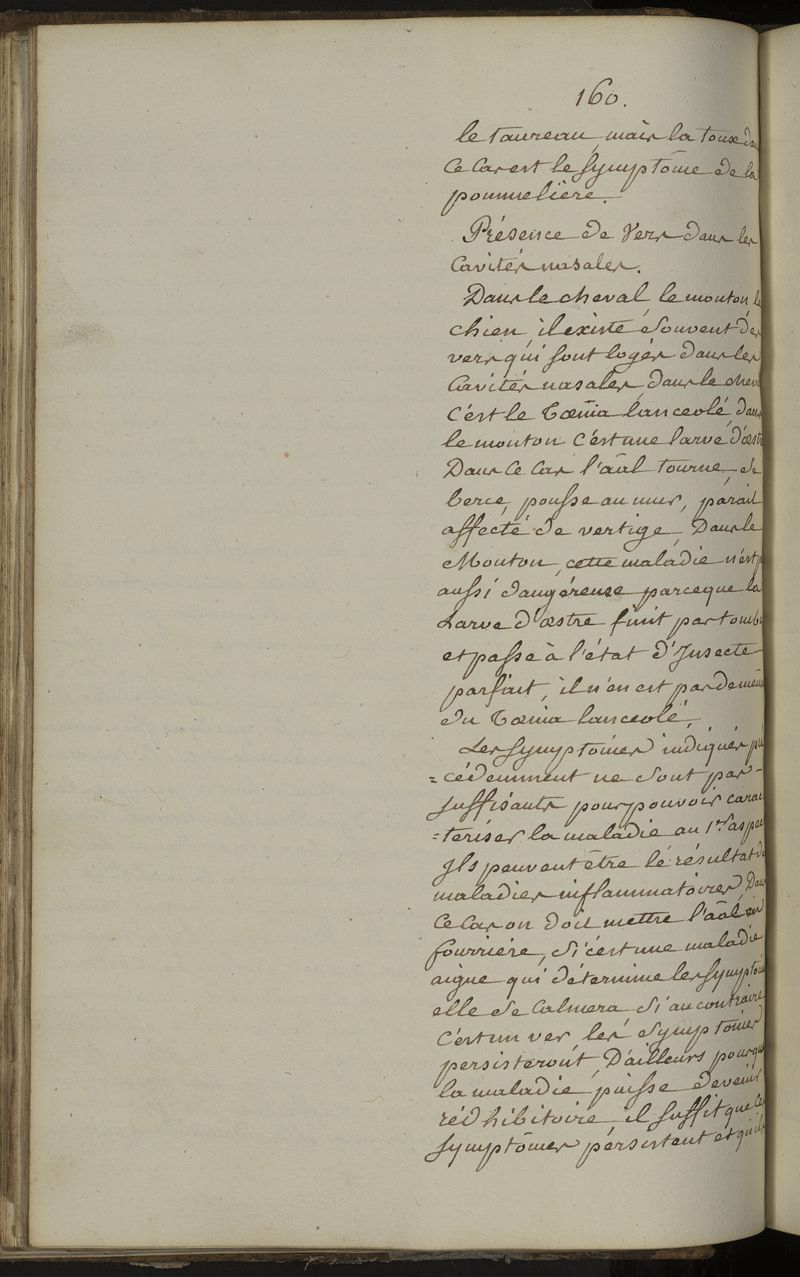 160.
le taureau, mais la toux da
ce cas est le symptôme de la
pommelière.
Présence de Vers dans les
Cavités nasales.
Dans le cheval, le mouton le
chien, il existe souvent des
vers qui sont logés dans les
Cavités nasales, dans le cheva
C'est le Tœnia lanceolé, dans
le mouton c'est une larve d'œst
Dans ce cas l'aãl tourne, se
berce, pousse au mur, parait
affecté de vertige, Dans le
Mouton, cette maladie n'est p
aussi dangéreuse parceque la
Larve d'œstre finit par tombe
et passe à l'état d'Insecte
parfait, il n'en est pas de mêm
du Tœnia lanceolé,
Les symptômes indiqués pré
=cédemment ne sont pas
suffisants pour pouvoir carac
=tériser la maladie au 1er aspec
Ils peuvent être le résultat de
maladies inflammatoires, Dans
ce cas on doit mettre l'aãl en
fourrière, si c'est une maladie
aigue qui détermine les symptôm
elle se calmera, si au contraire
c'est un ver, les symptômes
persisteront, D'ailleurs pour que
la maladie puisse devenir
rédhibitoire, il suffit que les
symptômes persistent et qu'ils